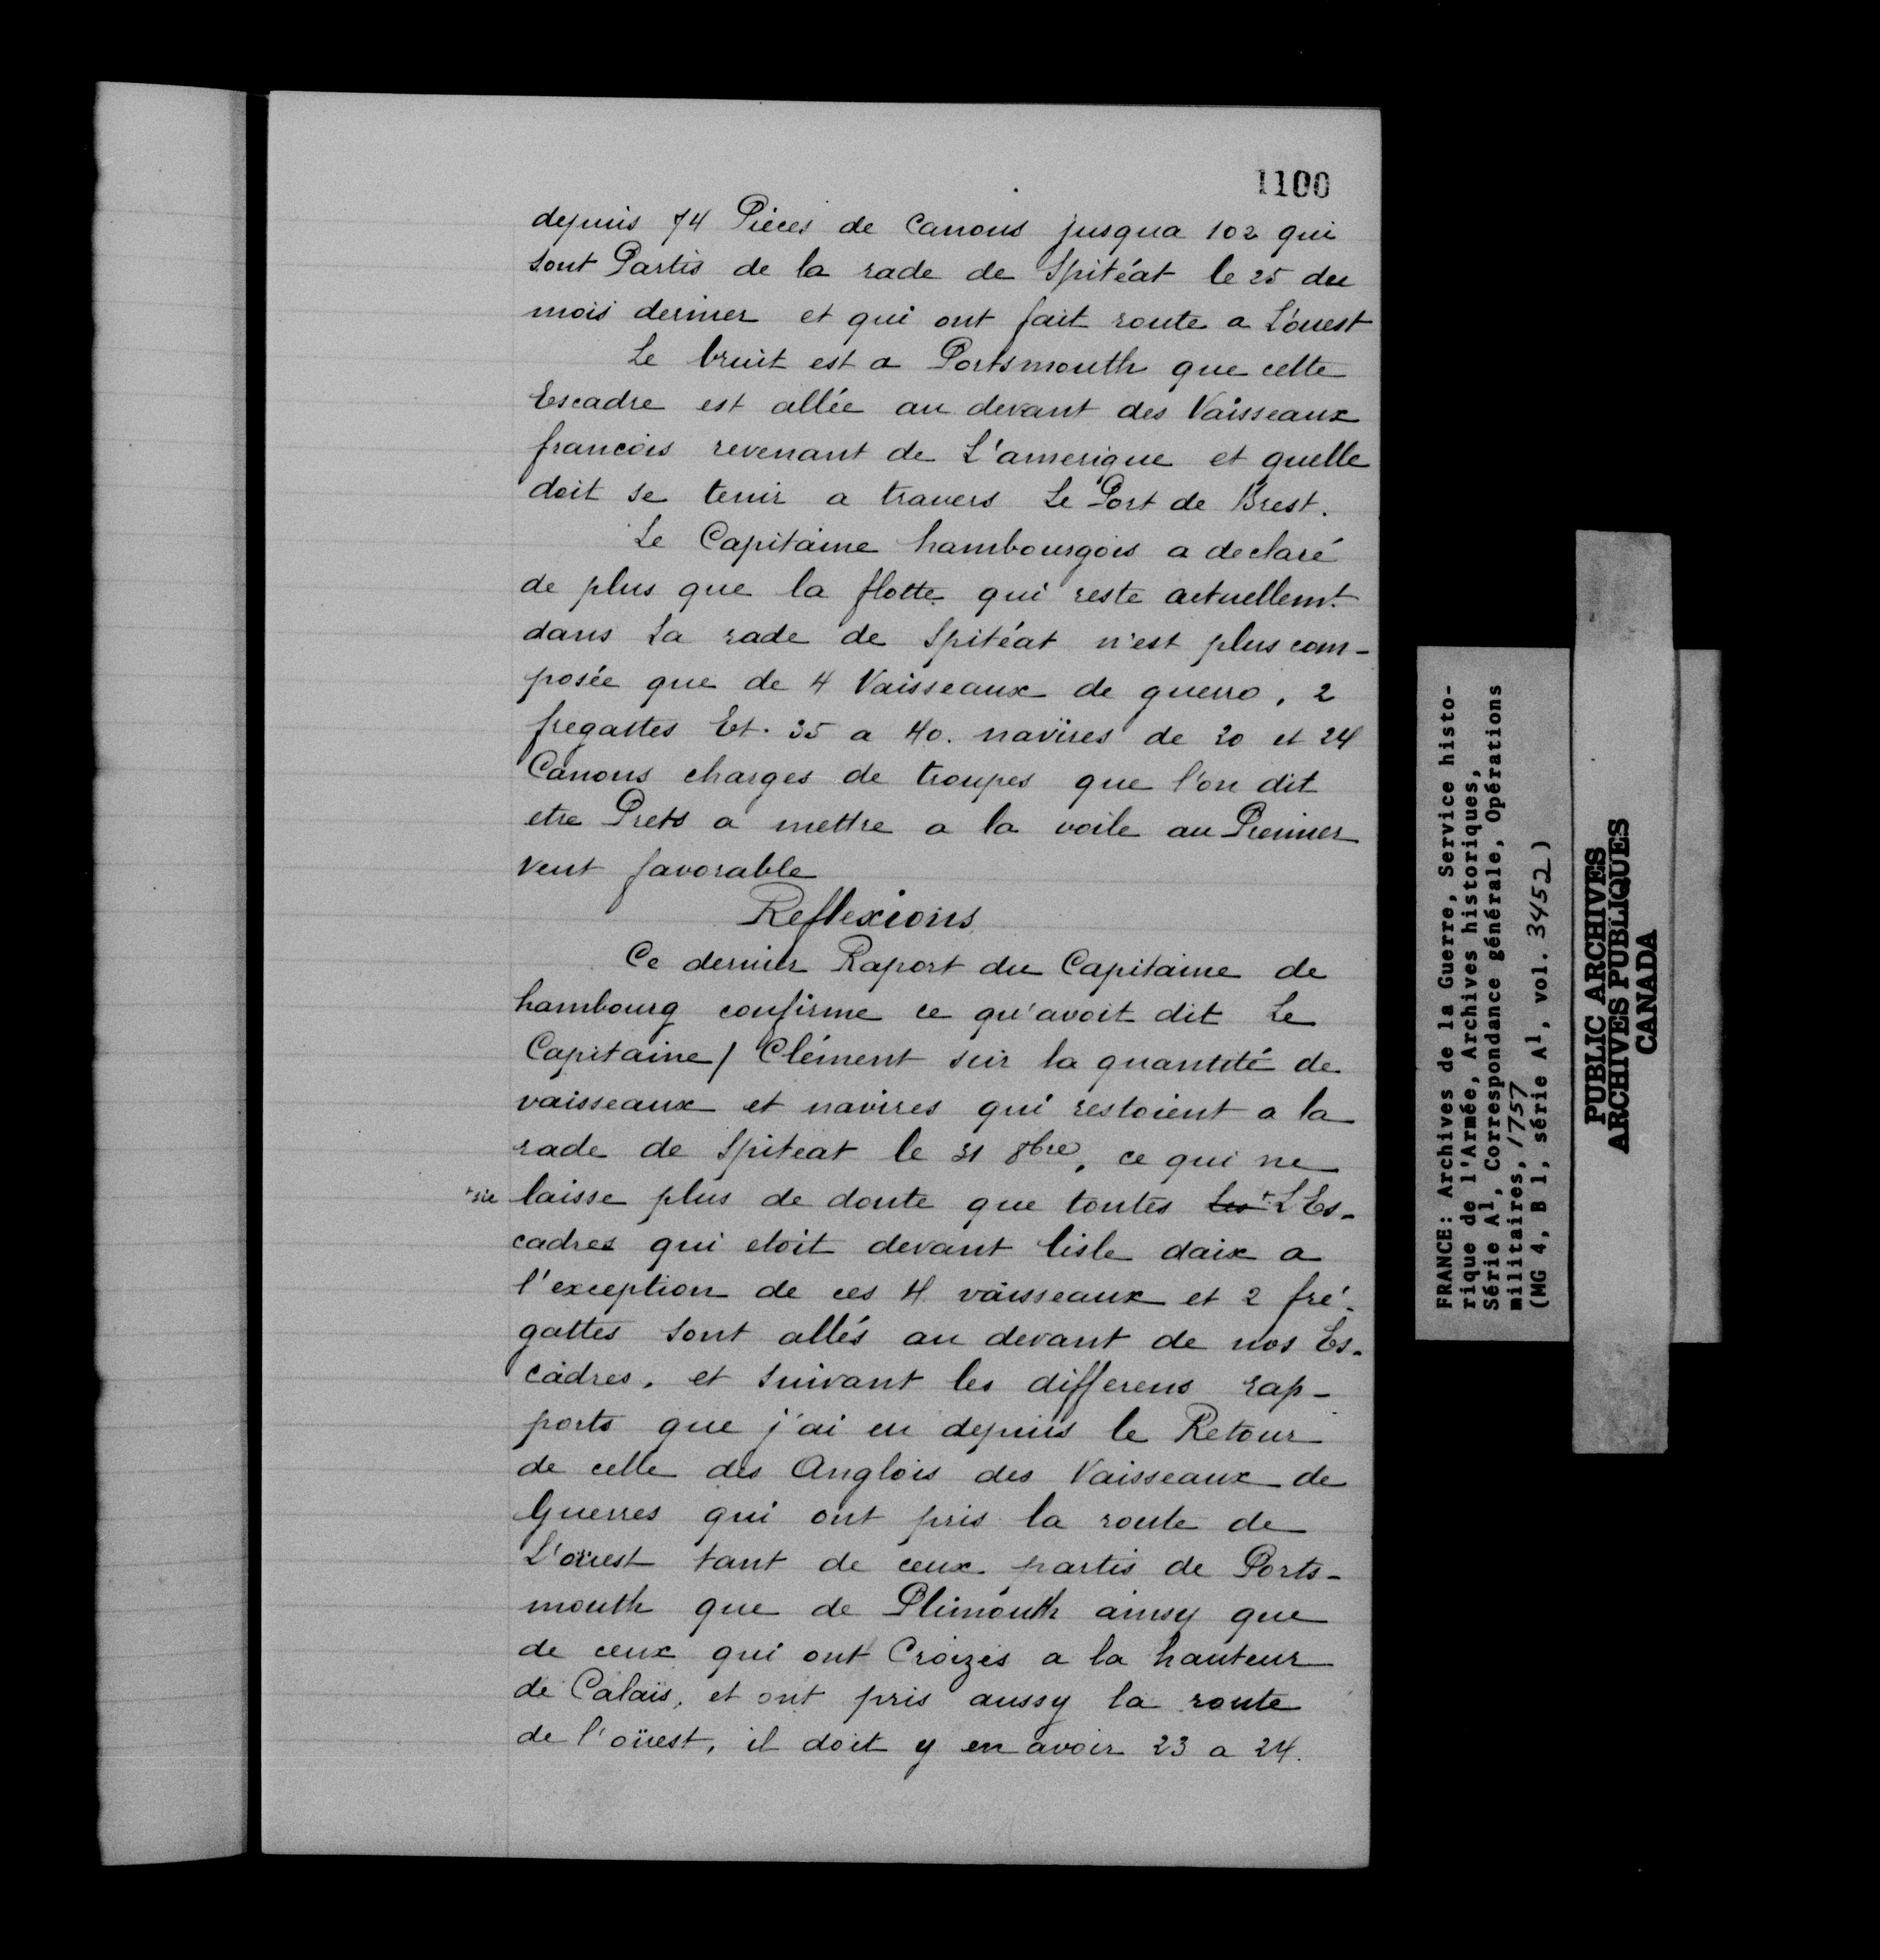 1100
depuis 74 Pièces de Canons jusqua 102 qui
sont Partis de la rade de Spitéat le 25 du
mois dernier et qui ont fait route a L'ouest
Le bruit est a Portsmouth que cette
Escadre est allée au devant des Vaisseaux
francois revenant de L'amerique et quelle
doit se tenir a travers Le Port de Brest.
Le Capitaine hambourgois a declaré
de plus que la flotte qui reste actuellemt.
dans La rade de Spitéat n'est plus com-
posée que de 4 Vaisseaux de guerro, 2
fregattes Et. 35 a 40. navires de 20 et 24
Canons charges de troupes que l'on dit
etre Prets a mettre a la voile au Premier
vent favorable
Reflexions
Ce dernier Raport du Capitaine de
hambourg confirme ce qu'avoit dit Le
Capitaine / Clément sur la quantité de
vaisseaux et navires qui restoient a la
rade de Spiteat le 31 8bre, ce qui ne
+sic laisse plus de doute que toutes Les + L'Es-
cadres qui etoit devant lisle daix a
l'exception de ces 4 vaisseaux et 2 fré-
gattes sont allés au devant de nos Es-
cadres, et suivant les differens rap-
ports que j'ai eu depuis le Retour
de celle des Anglois des Vaisseaux de
Guerres qui ont pris la route de
L'oüest tant de ceux partis de Ports-
mouth que de Plimouth ainsy que
de ceux qui ont Croizés a la hauteur
de Calais, et ont pris aussy la route
de l'oüest, il doit y en avoir 23 a 24.
FRANCE: Archives de la Guerre, Service histo-
rique de l'Armée, Archives historiques,
Série A1, Correspondance générale, Opérations
militaires, 1757
(MG 4, B 1, série A1, vol. 3452)
PUBLIC ARCHIVES
ARCHIVES PUBLIQUES
CANADA